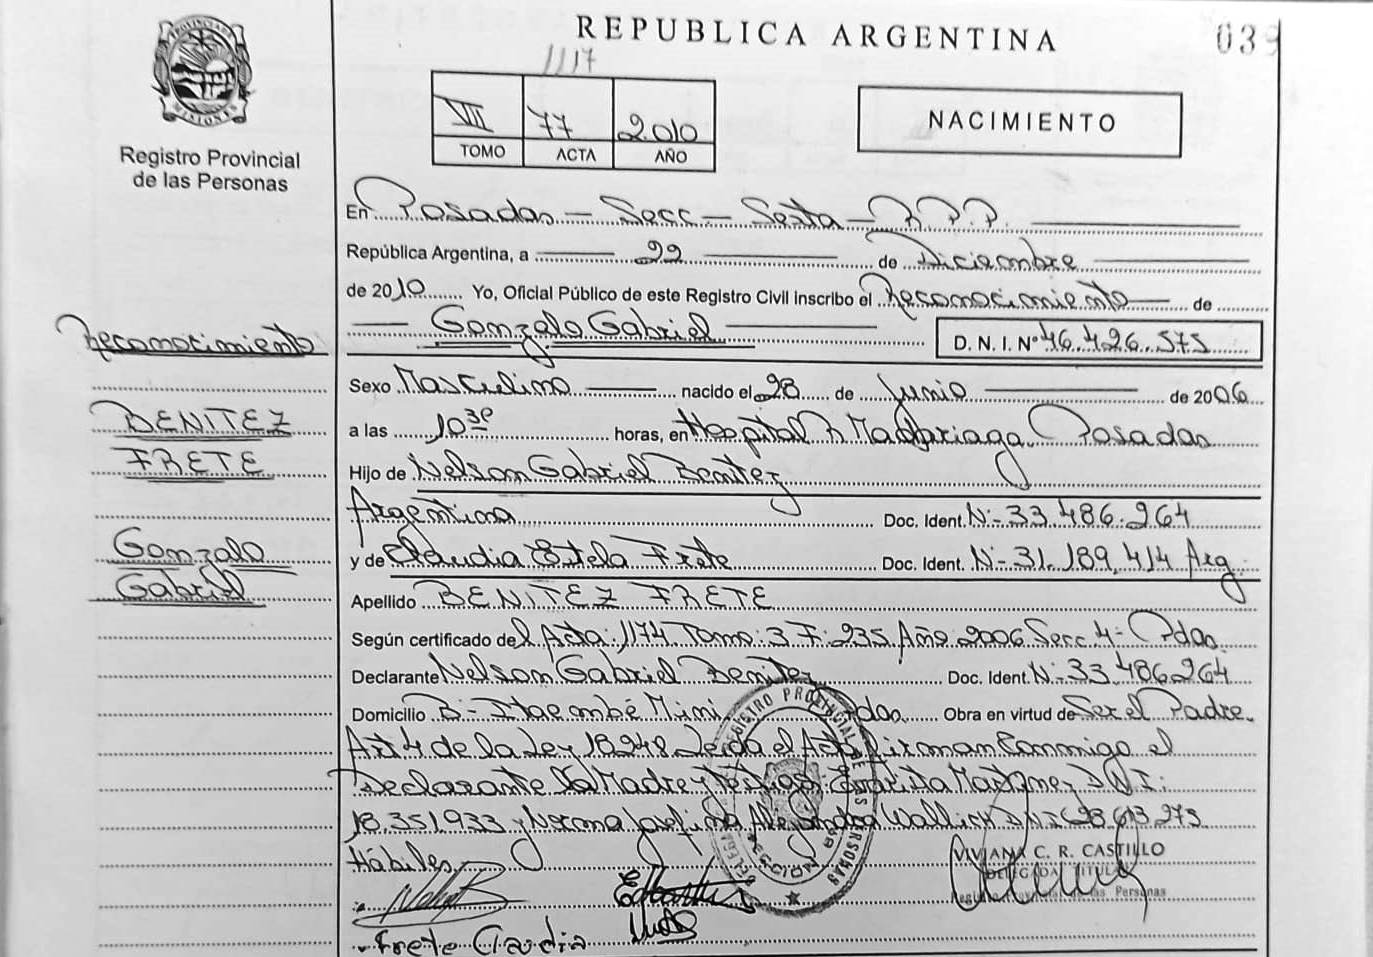 REPUBLICA ARGENTINA
039
1117
VII 77 2010
TOMO ACTA AÑO
NACIMIENTO
PROVINCIA DE MISIONES
Registro Provincial
de las Personas
En Posadas - Secc - Sexta - R.P.P.
República Argentina, a 22 de Diciembre
de 2010 Yo, Oficial Público de este Registro Civil inscribo el Reconocimiento de
Gonzalo Gabriel D. N. I. N° 46.426.575
Reconocimiento
BENITEZ
FRETE
Gonzalo
Gabriel
Sexo Masculino nacido el 28 de Junio de 2006
a las 10 30 horas, en Hospital R Madariaga Posadas
Hijo de Nelson Gabriel Benitez
Argentina Doc. Ident. N- 33.486.264
y de Claudia Estela Frete Doc. Ident. N- 31.189.414 Arg
Apellido BENITEZ FRETE
Según certificado del Acta: 1174 Tomo: 3 F: 235 Año 2006 Secc 4- Pdas
Declarante Nelson Gabriel Benitez Doc. Ident. N- 33.486.264
Domicilio B- Itaembé Mini Pdas Obra en virtud de Ser el Padre
Art 4 de la Ley 18248 Leida el Acta Firman Conmigo el
Declarante La Madre y Testigos: Martinez D.N.I:
18.351.933 y Norma Josefina Alejandra Wallich D.N.I 28.613.273
Hábiles
REGISTRO PROVINCIAL DE LAS PERSONAS
VIVIANA C. R. CASTILLO
DELEGADA TITULAR
Registro Provincial de las Personas
Frete Claudia